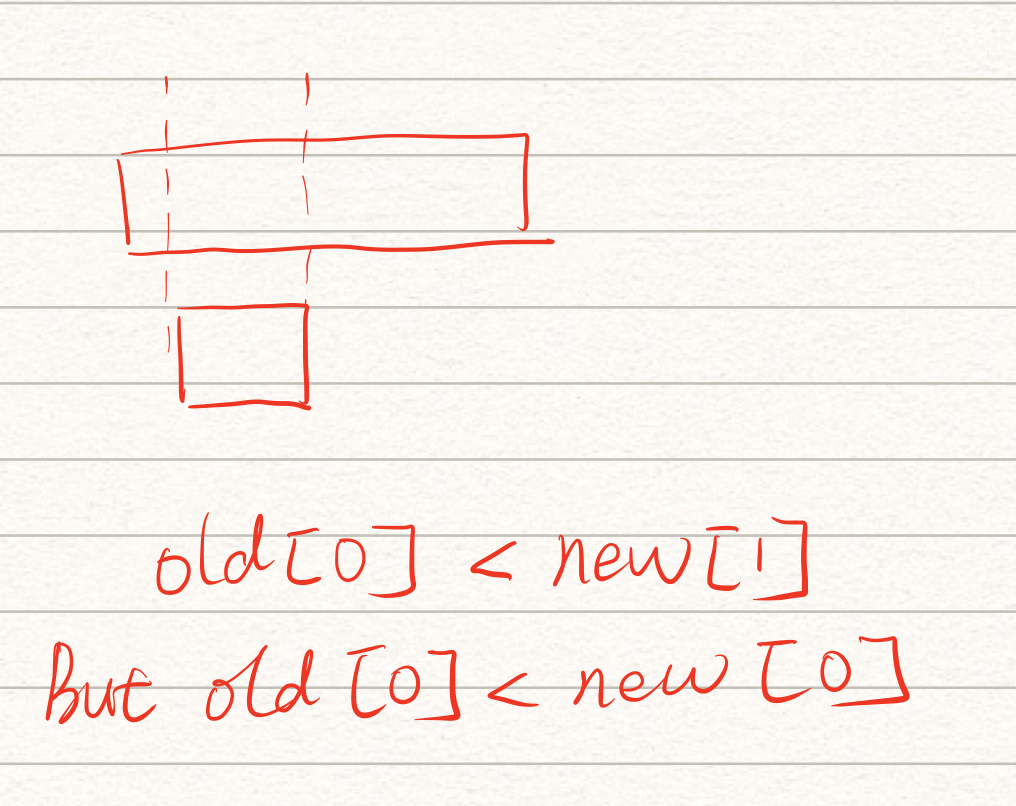 old[0] < new[1]
But old[0] < new[0]